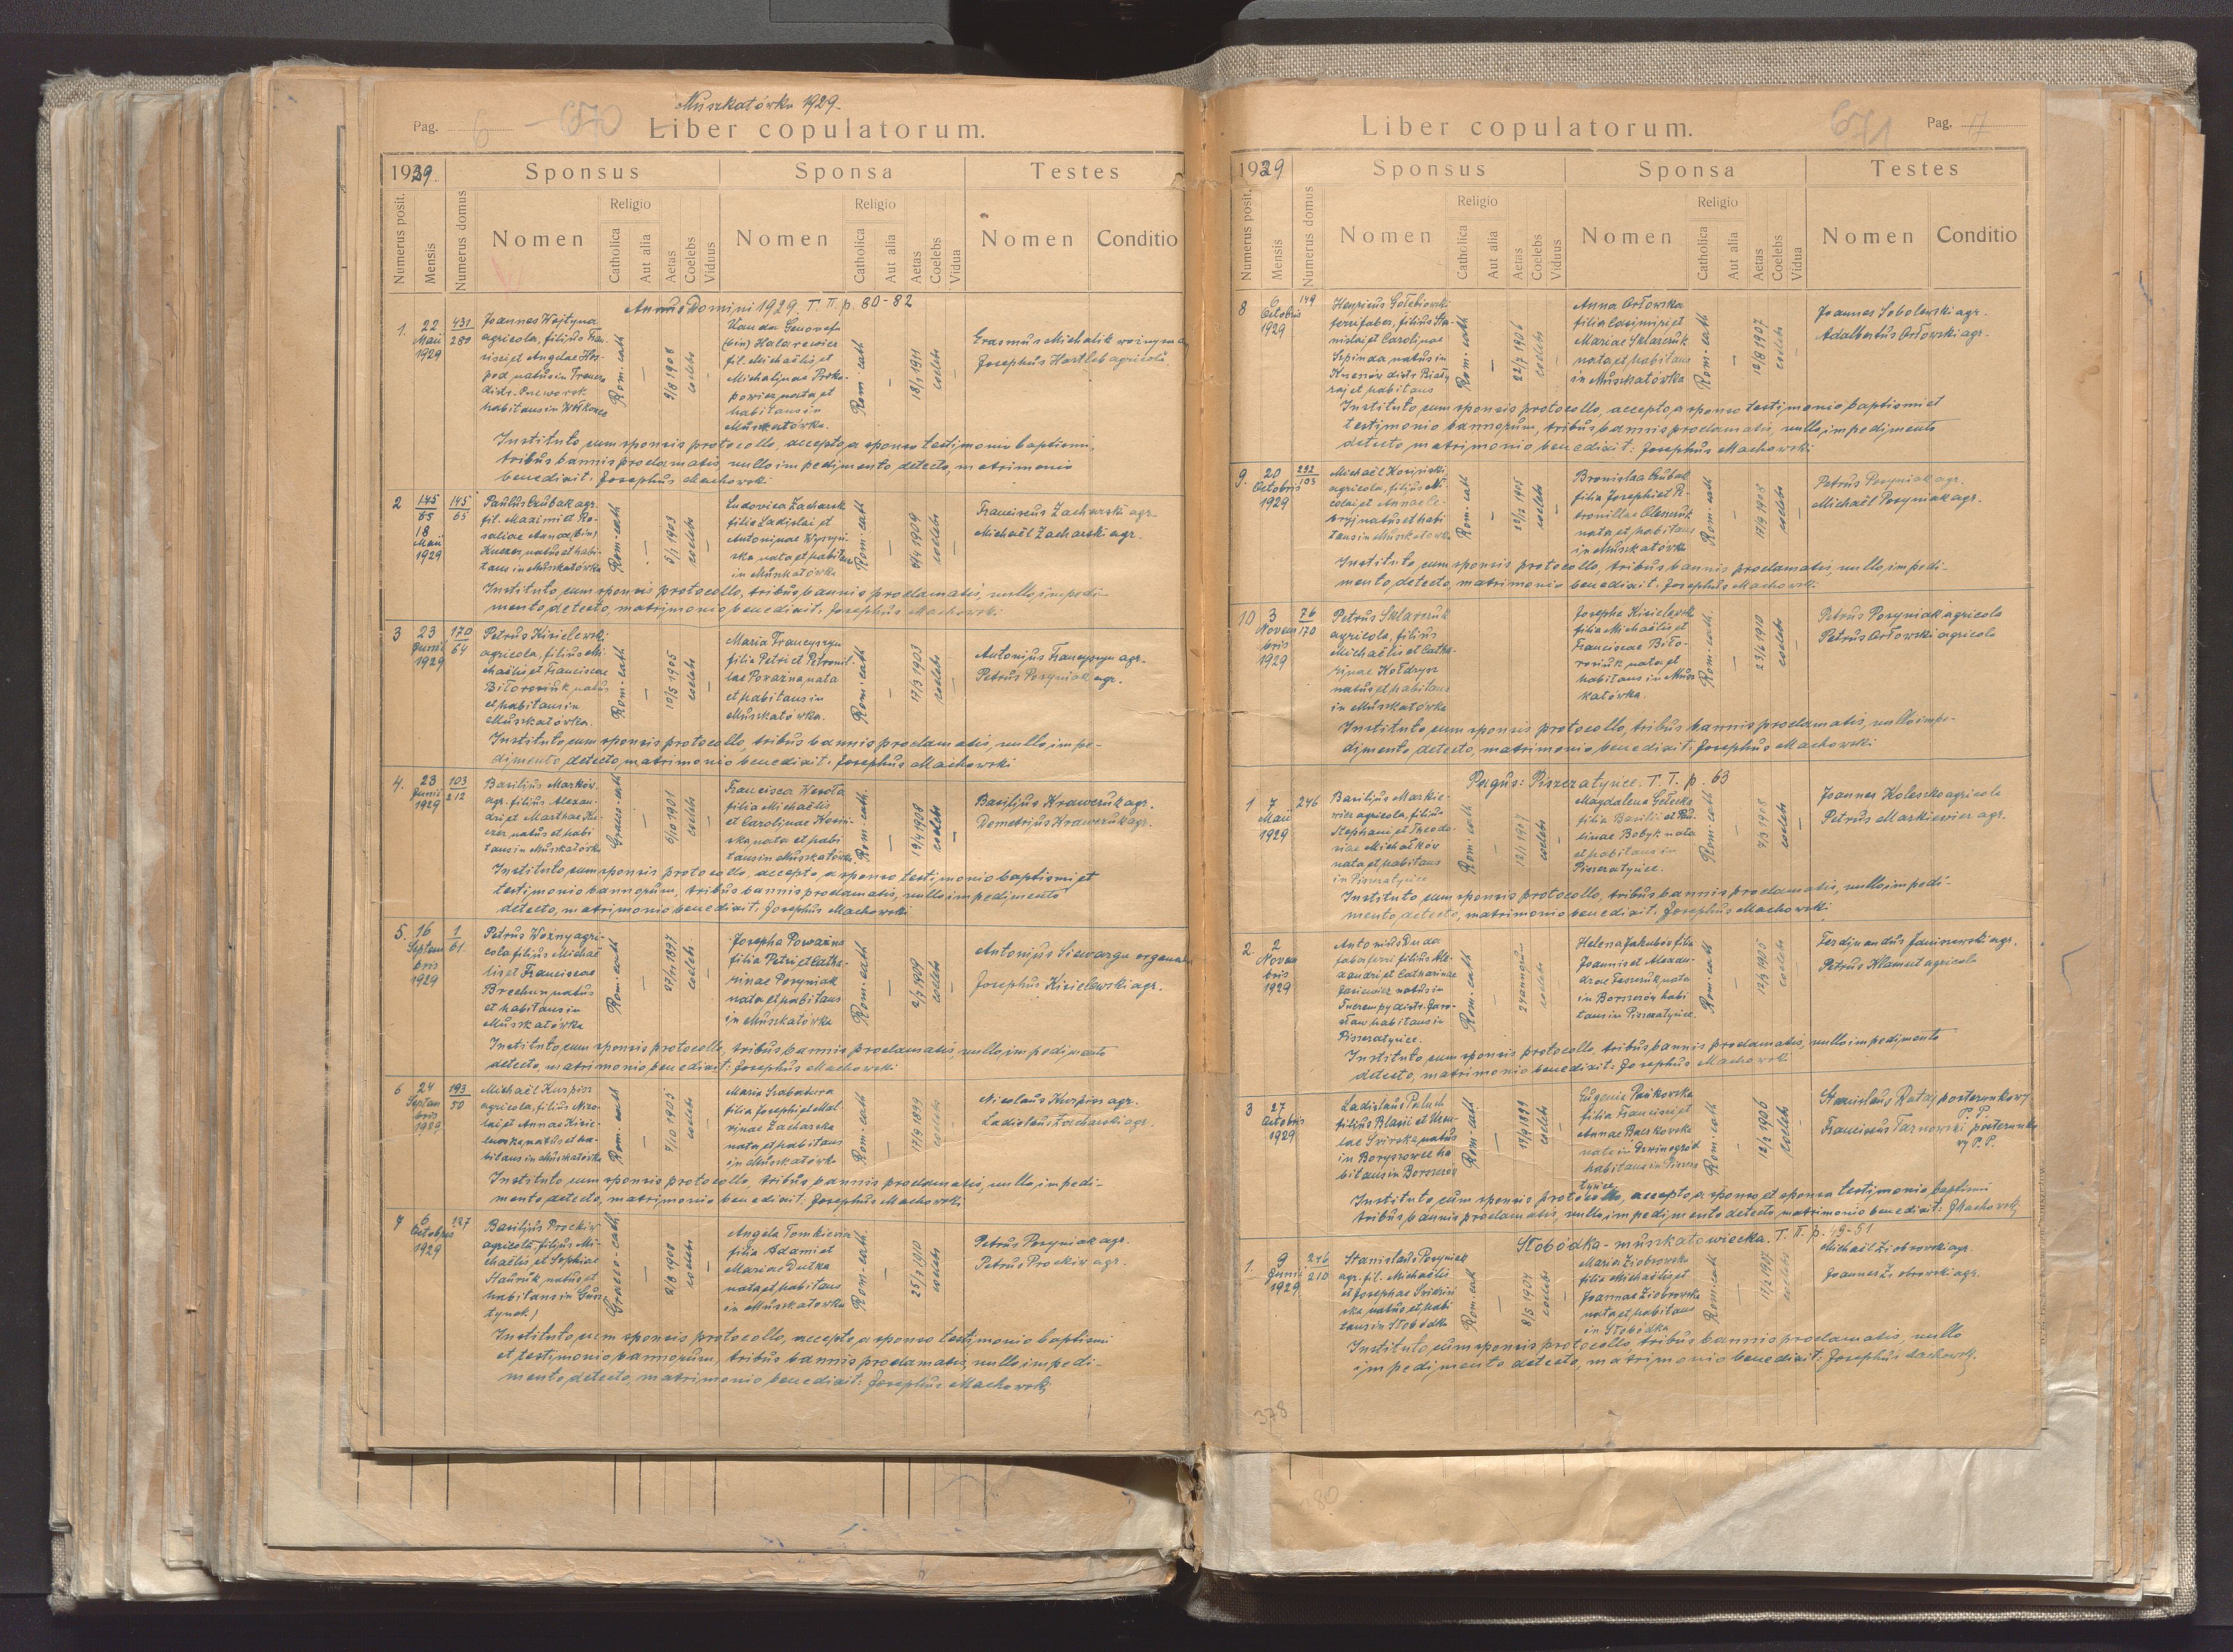 Muszkatówka 1929.
Pag. 6 670 Liber copulatorum.
1929.
Sponsus Sponsa Testes
Numerus posit. Mensis Numerus domus Nomen Religio Catholica Aut alia Aetas Coelebs Viduus Nomen Religio Catholica Aut alia Aetas Coelebs Vidua Nomen Conditio
Annus Domini 1929. T. II. p. 80-82
1. 22 Maii 1929 431 280
Joannes Wojtyna
agricola, filius Fran-
cisci et Angelae
natus in
distr. Przeworsk
habitans in
Rom. cath — 9/8 1908 coelebs —
Wanda Genovefa
(bin) Halarewicz
fil. Michaëlis et
Michalinae Proko-
powicz nata et
habitans in
Muszkatówka.
Rom. cath — 18/1 1911 coelebs —
Erasmus Michalik
Josephus Hartleb agricola.
Instituto cum sponsis protocollo, accepto a sponso testimonio baptismi,
tribus bannis proclamatis, nullo impedimento, detecto, matrimonio
benedixit: Josephus Machowski
2 145 65 18 Maii 1929 145 65
Paulus Czubak agr.
fil. Maximi et Ro-
saliae Annae (bin)
natus et habi-
tans in Muszkatówka
Rom. cath — 5/1 1903 coelebs —
Ludovica Zacharsk
filia Ladislai et
Antoninae Wyszyń-
ska nata et habitans
in Muszkatówka
Rom. cath — 9/4 1909 coelebs —
Franciscus Zacharski agr.
Michaël Zacharski agr.
Instituto, cum sponsis protocollo, tribus bannis proclamatis, nullo, impedi-
mento, detecto, matrimonio benedixit: Josephus Machowski
3 23 Junii 1929 170 64
Petrus Kisielewski
agricola, filius Mi-
chaëlis et Franciscae
Biłorosiuk, natus
et habitans in
Muszkatówka.
Rom. cath — 10/5 1905 coelebs —
Maria Francyszyn
filia Petri et Petronil-
lae Poważna nata
et habitans in
Muszkatówka.
Rom. cath — 17/3 1903 coelebs —
Antonius Francyszyn agr.
Petrus Posyniak agr.
Instituto, cum sponsis protocollo, tribus bannis proclamatis, nullo impe-
dimento, detecto, matrimonio benedixit: Josephus Machowski
4. 23 Junii 1929 103 212
Basilius Marków
agr. filius Alexan-
dri et Marthae
natus et habi
tans in Muszkatówka
Graeco-cath — 6/10 1901 coelebs —
Francisca Wesoła
filia Michaëlis
et Carolinae Kosiń-
ska nata et habi
tans in Muszkatówka
Rom. cath. — 19/4 1908 coelebs —
Basilius Krawczuk agr.
Demetrius Krawczuk agr.
Instituto cum sponsis protocollo, accepto, a sponso testimonio baptismi et
testimonio bannorum, tribus bannis proclamatis, nullo impedimento
detecto, matrimonio benedixit: Josephus Machowski
5. 16 Septem bris 1929 1 61.
Petrus Woźny agri-
cola filius Michaë
lis et Franciscae
natus
et habitans in
Muszkatówka
Rom. cath — 27/11 1897 coelebs —
Josepha Poważna
filia Petri et Catha-
rinae Posyniak
nata et habitans
in Muszkatówka
Rom. cath — 1909 coelebs —
Antonius Siewarga organista
Josephus Kisielewski agr.
Instituto, cum sponsis protocollo, tribus bannis proclamatis, nullo impedimento
detecto, matrimonio benedixit: Josephus Machowski
6 24 Septem bris 1929 193 50
Michaël Kurpisz
agricola, filius Nico-
lai et Annae Kisie-
lewska natus et ha-
bitans in Muszkatówka
Rom. cath — 7/10 1903 coelebs —
Maria Szabatura
filia Josephi et Mal-
vinae Zacharska
nata et habitans
in Muszkatówka
Rom. cath — 17/9 1899 coelebs —
Nicolaus Kurpisz agr.
Ladislaus Zacharski agr.
Instituto, cum sponsis protocollo, tribus bannis proclamatis, nullo impedi-
mento detecto, matrimonio benedixit: Josephus Machowski
7 6 Octobris 1929 127
Basilius Prockiw
agricola, filius Mi-
chaëlis et Sophiae
natus et
habitans in
Graeco-cath. — 2/8 1908 coelebs —
Angela Tomkiewicz
filia Adami et
Mariae Dutka
nata et habitans
in Muszkatówka
Rom. cath. — 25/2 1910 coelebs
Petrus Posyniak agr.
Petrus Prockiw agr.
Instituto, cum sponsis protocollo, accepto, a sponso testimonio baptismi
et testimonio bannorum, tribus bannis proclamatis, nullo impedi-
mento, detecto, matrimonio benedixit: Josephus Machowski
Liber copulatorum. 671 Pag. 7
1929
Sponsus Sponsa Testes
Numerus posit. Mensis Numerus domus Nomen Religio Catholica Aut alia Aetas Coelebs Viduus Nomen Religio Catholica Aut alia Aetas Coelebs Vidua Nomen Conditio
8 6 Octobris 1929 149
Henricus Gołębiowski
ferrifaber, filius Sta-
nislai et Carolinae
natus in
et habitans
Rom. cath — 22/7 1906 coelebs —
Anna Orłowska
filia Casimiri et
Mariae Sklarczuk
nata et habitans
in Muszkatówka
Rom. cath — 12/8 1907 coelebs —
Joannes Sobolewski agr.
Adalbertus Orłowski agr.
Instituto, cum sponsis protocollo, accepto, a sponso testimonio baptismi et
testimonio bannorum, tribus bannis proclamatis, nullo, impedimento
detecto matrimonio benedixit: Josephus Machowski
9. 20 Octobris 1929 292 103
Michaël Kosiński
agricola, filius Ni-
colai et Annae
natus et habi
tans in Muszkatówka
Rom. cath — 1905 coelebs —
Bronislaa Czubak
filia Josephi et Pe-
tronillae
nata et habitans
in Muszkatówka
Rom. cath — 17/9 1908 coelebs —
Petrus Posyniak agr.
Michaël Posyniak agr.
Instituto, cum sponsis protocollo, tribus bannis proclamatis, nullo, impedi-
mento, detecto, matrimonio benedixit: Josephus Machowski
10 3 Novem bris 1929 76 170
Petrus Sklarczuk
agricola, filius
Michaëlis et Catha-
rinae
natus et habitans
in Muszkatówka
Josepha Kisielewsk
filia Michaëlis et
Franciscae Biło-
rosiuk nata et
habitans in Musz
katówka.
Rom. cath. — 23/6 1910 coelebs —
Petrus Posyniak agricola
Petrus Orłowski agricola
Instituto, cum sponsis protocollo, tribus bannis proclamatis, nullo impe-
dimento, detecto, matrimonio benedixit: Josephus Machowski
Pagus: Piszczatyńce. T. I. p. 63
1 7 Maii 1929 246
Basilius Markie-
wicz agricola, filius
Stephani et Theodo-
siae Michałków
nata et habitans
in Piszczatyńce
Rom. cath — 12/1 1907 coelebs —
Magdalena
filia Basilii et Pau-
linae Bobyk nata
et habitans in
Piszczatyńce.
Rom. cath — 7/3 1908 coelebs —
Joannes Koleszko agricola
Petrus Markiewicz agr.
Instituto, cum sponsis protocollo, tribus bannis proclamatis, nullo impedi-
mento, detecto, matrimonio benedixit: Josephus Machowski
2. 2 Novem bris 1929
Antonius Duda
faber ferri filius Ale-
xandri et Catharinae
natus in
distr. Jaro-
sław habitans in
Piszczatyńce.
Rom. cath — 24 annorum coelebs
Helena Jakubów filia
Joannis et Alexan-
drae nata
in Borszczów habi
tans in Piszczatyńce.
Rom. cath — 1905 coelebs —
Ferdinandus Janiszewski agr.
Petrus Klament agricola
Instituto, cum sponsis protocollo, tribus bannis proclamatis, nullo impedimento
detecto, matrimonio benedixit: Josephus Machowski
3 27 Octobris 1929
Ladislaus Paluch
filius Blasii et Ursu-
lae natus
in Boryszowce ha
bitans in Borszczów
Rom. cath — 17/9 1899 coelebs —
Eugenia Pańkowska
filia Francisci et
Annae
nata in
habitans in Piszcza
tyńce.
Rom. cath — 12/2 1906 coelebs —
Stanislaus Rataj posterunkowy
P. P.
Franciscus Tarnowski posterunko
wy P. P.
Instituto, cum sponsis protocollo, accepto, a sponso, et sponsa testimonio, baptismi
tribus, bannis proclamatis, nullo impedimento detecto matrimonio benedixit: J Machowski
Słobódka-muszkatowiecka. T. II p. 49-51
1. 9 Junii 1929 246 210
Stanislaus Posyniak
agr. fil. Michaëlis
et Josephae
natus, et habi
tans in Słobódka
Rom. cath — 8/5 1904 coelebs —
Maria Ziobrowska
filia Michaëlis et
Joannae Ziobrowska
nata et habitans
in Słobódka
Rom. cath — 17/2 1907 coelebs —
Michaël Ziobrowski agr.
Joannes Ziobrowski agr.
Instituto cum sponsis protocollo, tribus bannis proclamatis, nullo
impedimento detecto, matrimonio benedixit: Josephus Machowski.
378
380